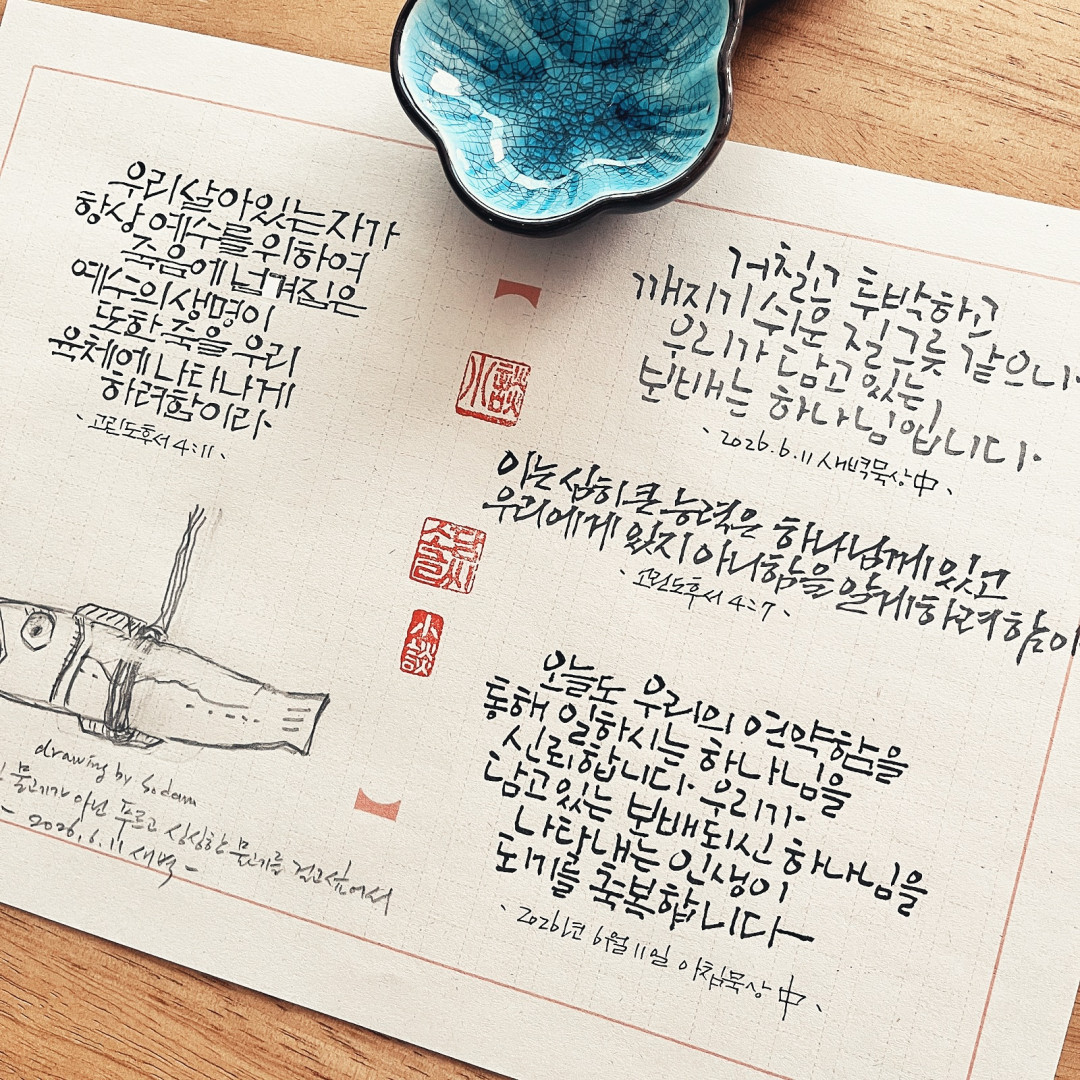 우리 살아있는 자가
항상 예수를 위하여
죽음에 넘겨짐은
예수의 생명이
또한 죽을 우리
육체에 나타나게
하려함이라.
고린도후서 4:11
drawing by Sodam
물고기가 아닌 푸르고 싱싱한 물고기를 걸고싶어서
- 2026.6.11 새벽 -
小談
소담글씨
小談
거칠고 투박하고
깨지기 쉬운 질그릇 같으나
우리가 담고 있는
보배는 하나님입니다.
2026.6.11 새벽묵상中
이는 심히 큰 능력은 하나님께 있고
우리에게 있지 아니함을 알게 하려 함이
고린도후서 4:7
오늘도 우리의 연약함을
통해 일하시는 하나님을
신뢰합니다. 우리가
담고 있는 보배되신 하나님을
나타내는 인생이
되기를 축복합니다
2026년 6월 11일 아침묵상中